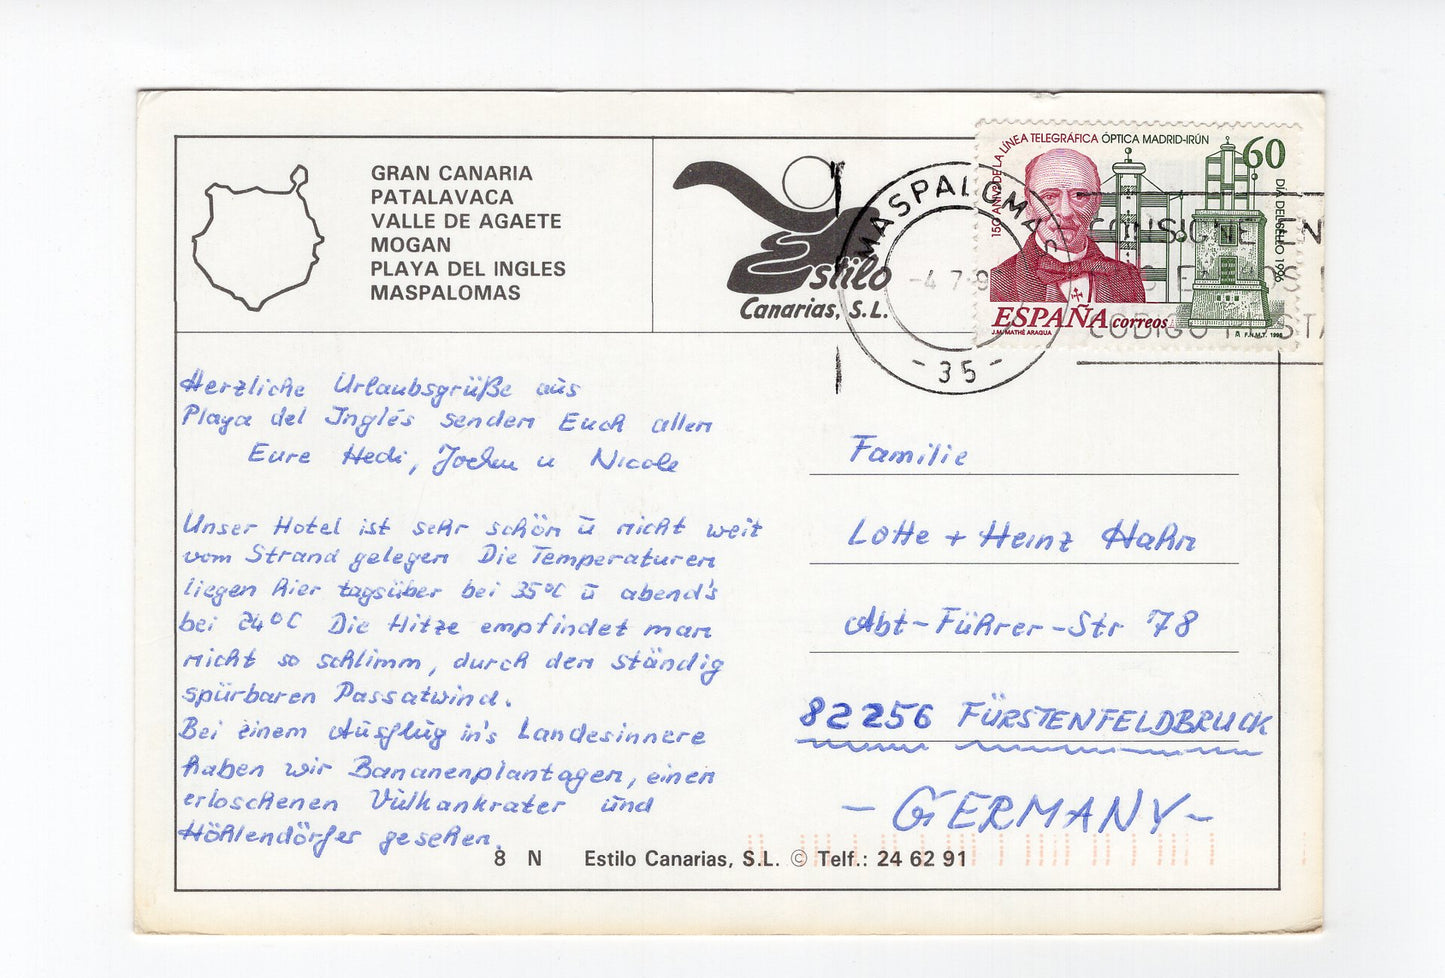 GRAN CANARIA
PATALAVACA
VALLE DE AGAETE
MOGAN
PLAYA DEL INGLES
MASPALOMAS
Estilo
Canarias, S.L.
MASPALOMAS
-4 7-9
- 35 -
CONSIGNE EN
CODIGO POSTA
150 ANIV. DE LA LÍNEA TELEGRÁFICA ÓPTICA MADRID-IRÚN
60
DÍA DEL SELLO 1996
ESPAÑA correos
J.M. MATHÉ ARAGUA
F.N.M.T. 1996
Herzliche Urlaubsgrüße aus
Playa del Inglés senden Euch allen
Eure Hedi, Jochen u Nicole
Unser Hotel ist sehr schön ū nicht weit
vom Strand gelegen Die Temperaturen
liegen hier tagsüber bei 35°C ū abend's
bei 24°C Die Hitze empfindet man
nicht so schlimm, durch den ständig
spürbaren Passatwind.
Bei einem Ausflug in's Landesinnere
haben wir Bananenplantagen, einen
erloschenen Vulkankrater und
Höhlendörfer gesehen.
Familie
Lotte + Heinz Hahn
Abt-Führer-Str 78
82256 FÜRSTENFELDBRUCK
- GERMANY -
8 N Estilo Canarias, S.L. © Telf.: 24 62 91